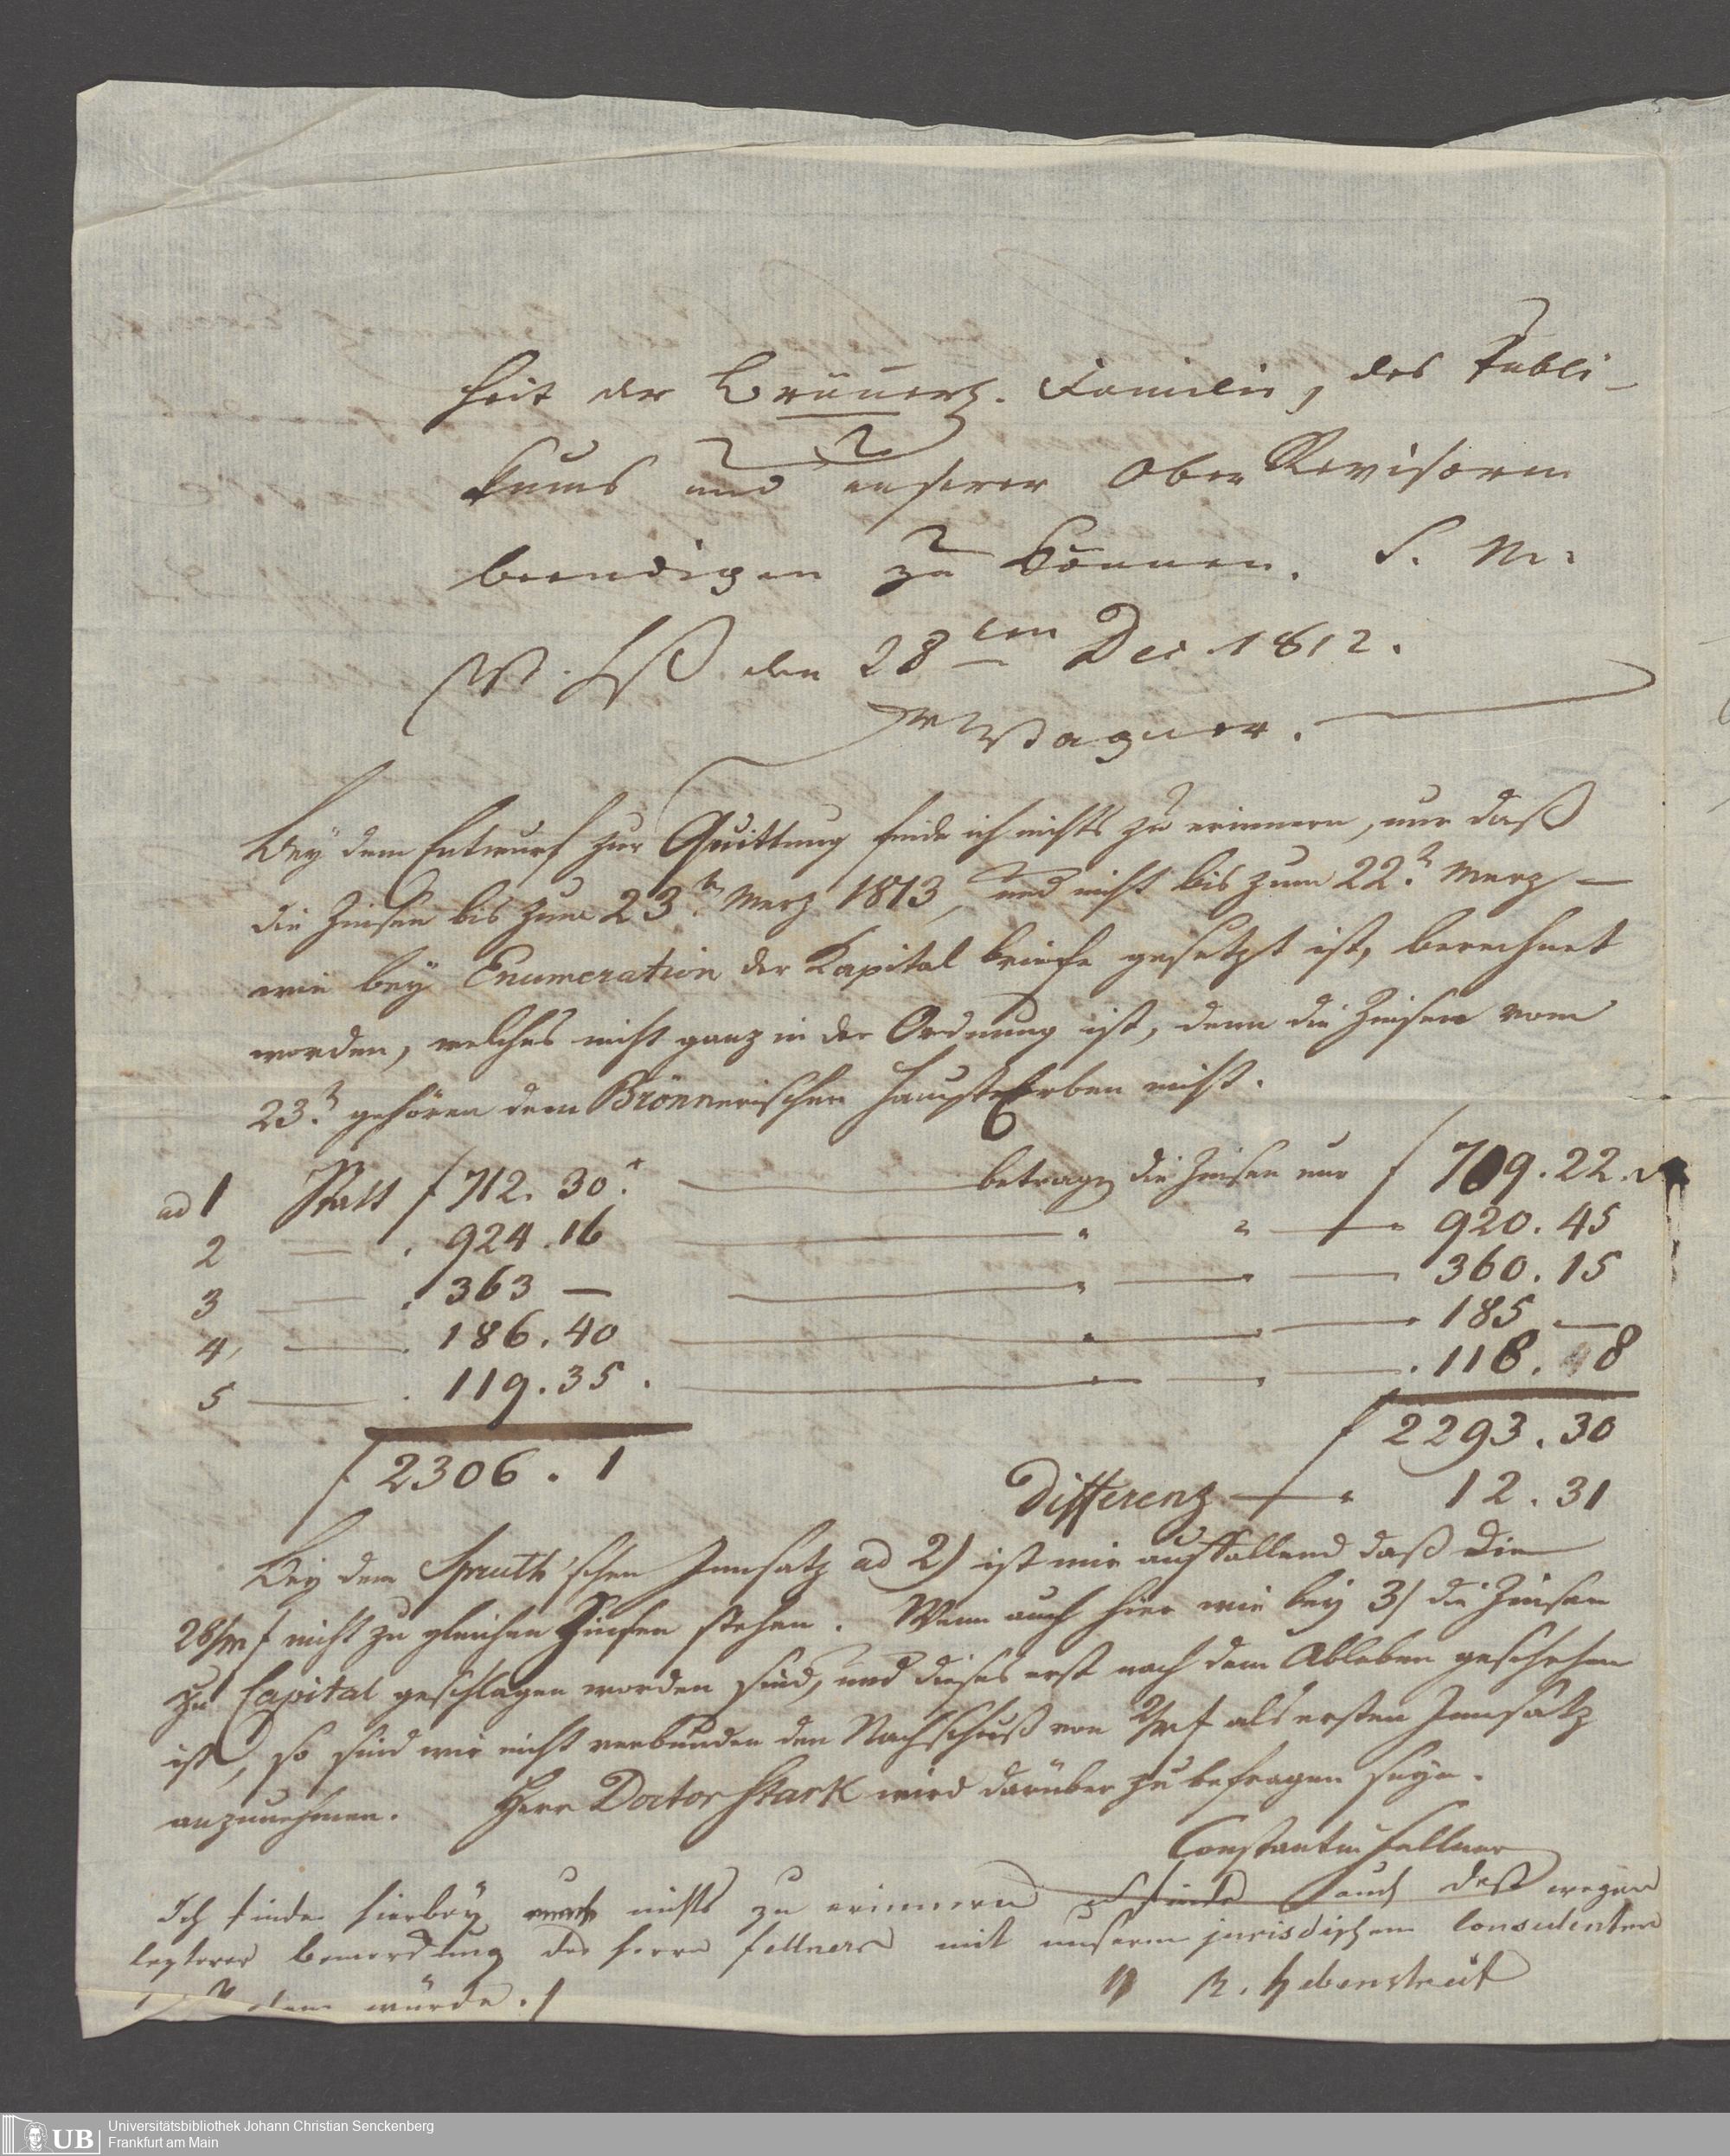 heit der Brönnersch. Familie, des Publi-
kums und unserer Ober Revisoren
beendigen zu können. S. M.
den 28ten Dec 1812.
Dr Wagner.
Bey dem Entwurf zur Quittung finde ich nichts zu erinnern, nur daß
die Zinsen bis zum 23tn Merz 1813, und nicht bis zum 22n Merz —
wie bey Enumeration der Kapital briefe gesetzt ist, berechnet
worden, welches nicht ganz in der Ordnung ist, denn die Zinsen vom
23n gehören dem Brönnerischen Haupt Erben nicht.
ad 1 Statt f 712. 30. betragen die Zinsen nur f 709. 22.
2 — . 924. 16 — " " — 920. 45
3 — . 363 — — " — 360. 15
4, — . 186. 40 — " — 185 —
5 — . 119. 35. — " — 118. 8
f 2306. 1 f 2293. 30
Differenz — " 12. 31
Bey dem Spruth'schen Innsatz ad 2) ist mir auffallend daß die
28/m f nicht zu gleichen Zinsen stehen. Wenn auch hier wie bey 3) die Zinsen
zu Capital geschlagen worden sind, und dieses erst nach dem Ableben geschehen
ist, so sind wir nicht verbunden den Nachschuß von 2/m f als ersten Innsatz
anzunehmen. Herr Doctor Stark wird darüber zu befragen seyn.
Constantin Fellner
Ich finde hierbey nichts zu erinnern auch deß wegen
letzterer bemerckung des Herrn Fellners mit unserem juristischen Consulenten
würde.
R. Hebenstreit
Universitätsbibliothek Johann Christian Senckenberg
UB Frankfurt am Main